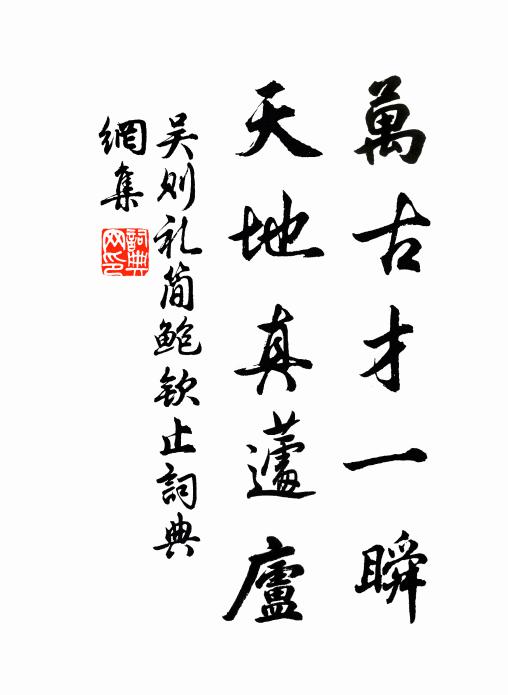 萬古才一瞬
天地真蘧廬
吴则礼简鲍钦止詞典
網集
詞典網印